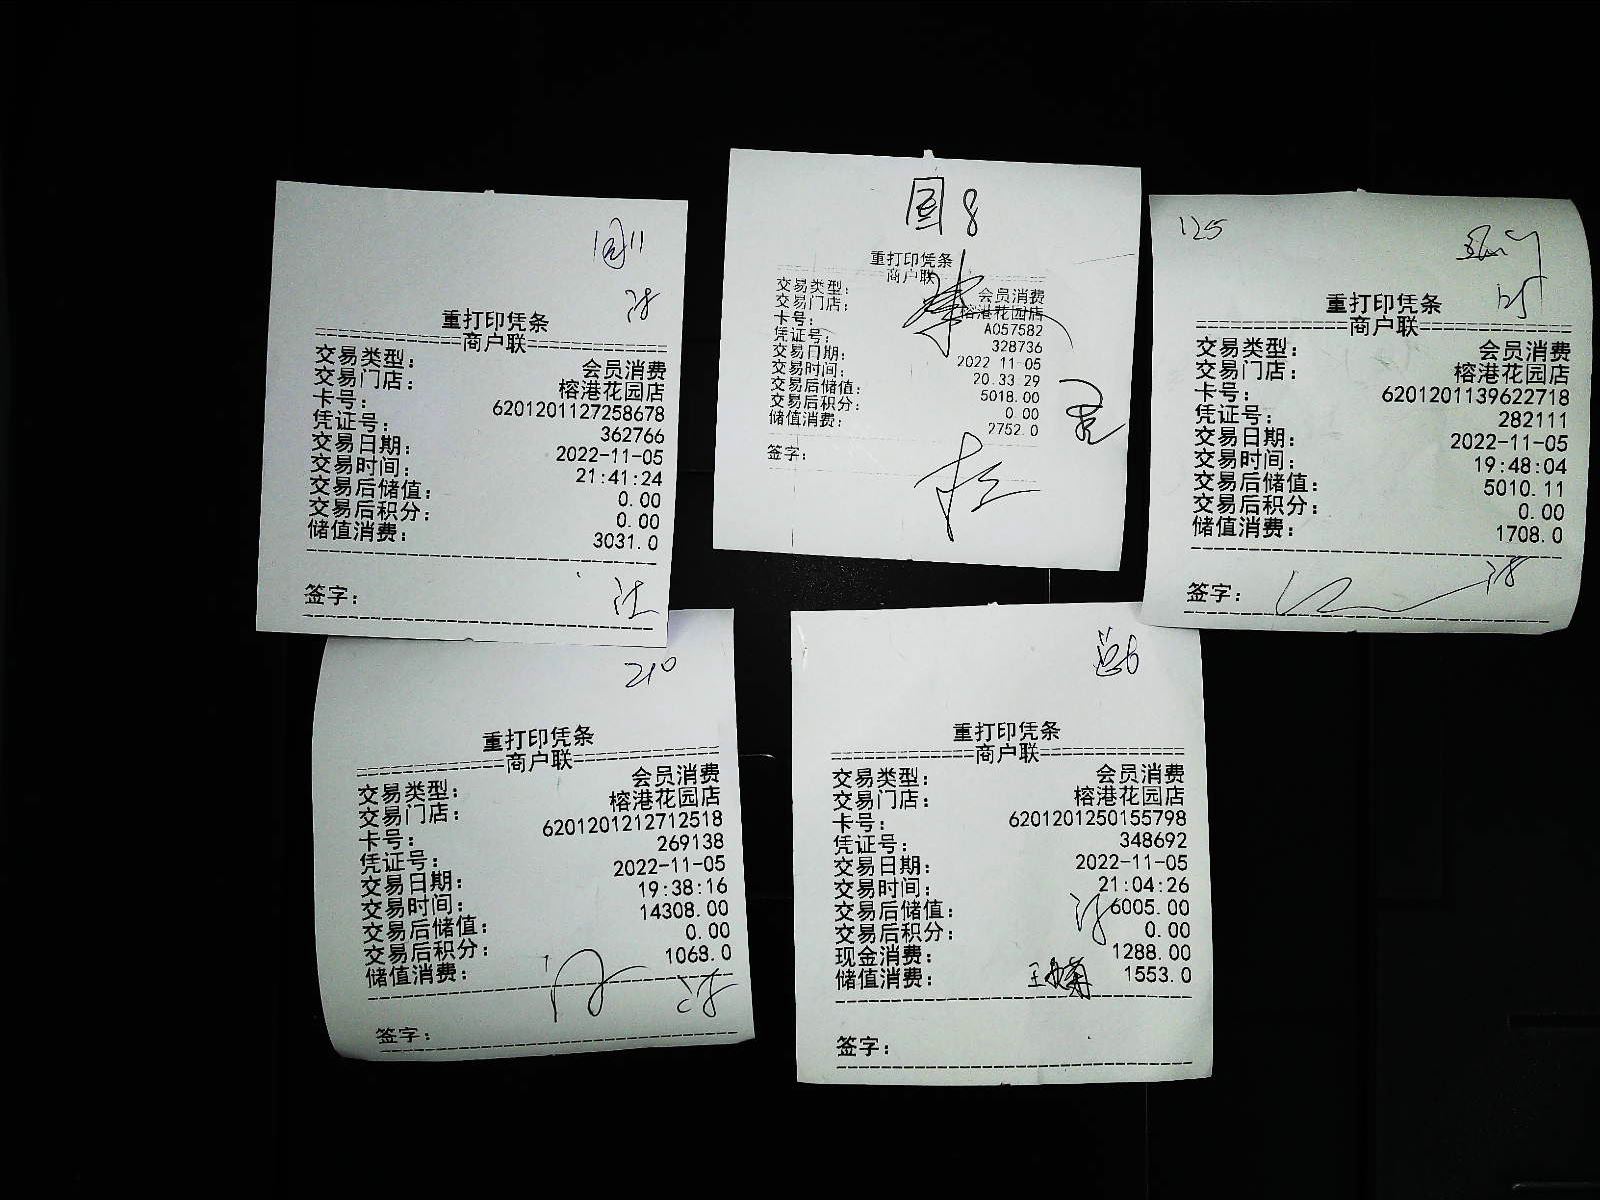 重打印凭条
商户联
交易类型： 会员消费
交易门店： 榕港花园店
卡号： 6201201127258678
凭证号： 362766
交易日期： 2022-11-05
交易时间： 21:41:24
交易后储值： 0.00
交易后积分： 0.00
储值消费： 3031.0
签字：
圁8
重打印凭条
商户联
交易类型： 会员消费
交易门店： 榕港花园店
卡号： A057582
凭证号： 328736
交易日期： 2022 11-05
交易时间： 20.33.29
交易后储值： 5018.00
交易后积分： 0 00
储值消费： 2752.0
签字：
125
125
重打印凭条
商户联
交易类型： 会员消费
交易门店： 榕港花园店
卡号： 6201201139622718
凭证号： 282111
交易日期： 2022-11-05
交易时间： 19:48:04
交易后储值： 5010.11
交易后积分： 0.00
储值消费： 1708.0
签字：
210
重打印凭条
商户联
交易类型： 会员消费
交易门店： 榕港花园店
卡号： 6201201212712518
凭证号： 269138
交易日期： 2022-11-05
交易时间： 19:38:16
交易后储值： 14308.00
交易后积分： 0.00
储值消费： 1068.0
签字：
重打印凭条
商户联
交易类型： 会员消费
交易门店： 榕港花园店
卡号： 6201201250155798
凭证号： 348692
交易日期： 2022-11-05
交易时间： 21:04:26
交易后储值： 6005.00
交易后积分： 0.00
现金消费： 1288.00
储值消费： 1553.0
签字：